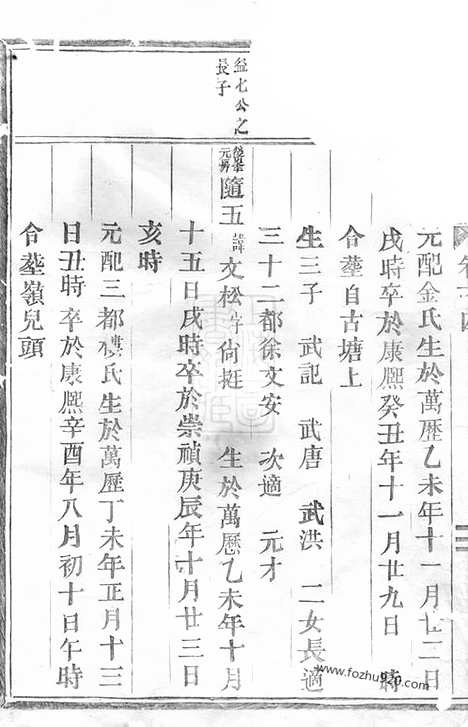 元配金氏生於萬歷乙未年十一月廿二日
戌時卒於康熙癸丑年十一月廿九日 時
合塟自古塘上
生三子 武記 武唐 武洪 二女長適
三十二都徐文安 次適 元才
益七公之
長子
隨五 諱文松字尙挺 生於萬歷乙未年十月
十五日戌時卒於崇禎庚辰年十月廿三日
亥時
元配三都樓氏生於萬歷丁未年正月十三
日丑時卒於康熙辛酉年八月初十日午時
合塟嶺兒頭
www.fozhu920.com